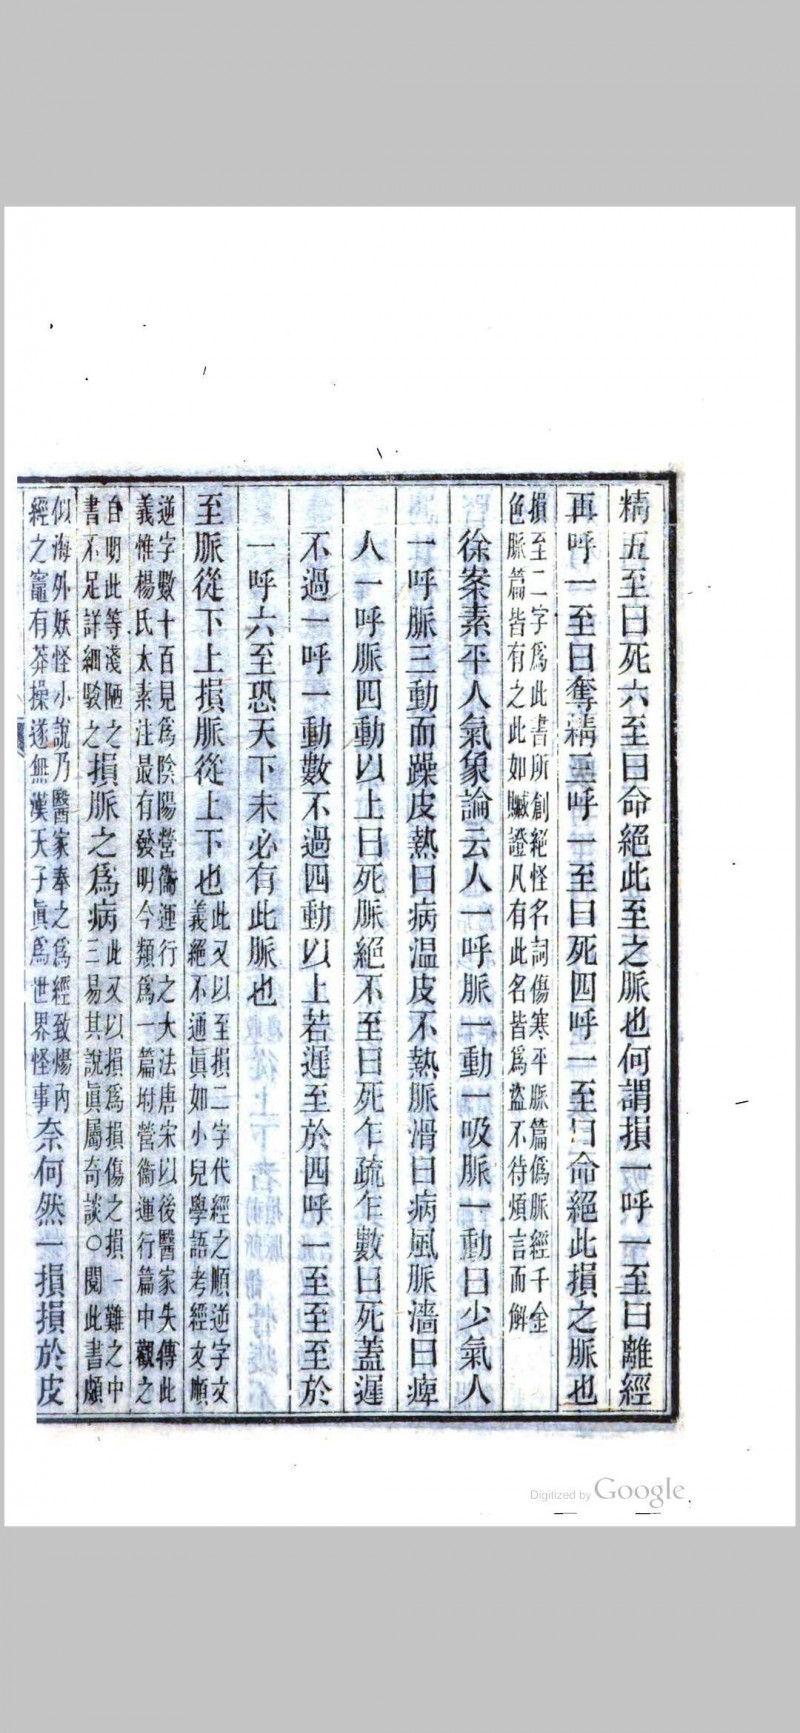 精五至曰死六至曰命絕此至之脈也何謂損一呼一至曰離經
再呼一至曰奪精三呼一至曰死四呼一至曰命絕此損之脈也
損至二字爲此書所創絕怪名詞傷寒平脈篇僞脈經千金
色脈篇皆有之此如贓證凡有此名皆爲盜不待煩言而解
徐案素平人氣象論云人一呼脈一動一吸脈一動曰少氣人
一呼脈三動而躁皮熱曰病溫皮不熱脈滑曰病風脈濇曰痺
人一呼脈四動以上曰死脈絕不至曰死乍疏乍數曰死蓋遲
不過一呼一動數不過四動以上若遲至於四呼一至至至於
一呼六至恐天下未必有此脈也
至脈從下上損脈從上下也
此又以至損二字代經之順逆字文
義絕不通眞如小兒學語考經文順
逆字數十百見爲陰陽營衞運行之大法唐宋以後醫家失傳此
義惟楊氏太素注最有發明今類爲一篇坿營衞運行篇中觀之
自明此等淺陋之
書不足詳細駁之
損脈之爲病
此又以損爲損傷之損一難之中
三易其說眞屬奇談○閱此書頗
似海外妖怪小說乃醫家奉之爲經致煬內
經之竈有莽操遂無漢天子眞爲世界怪事
奈何然一損損於皮
Digitized by Google